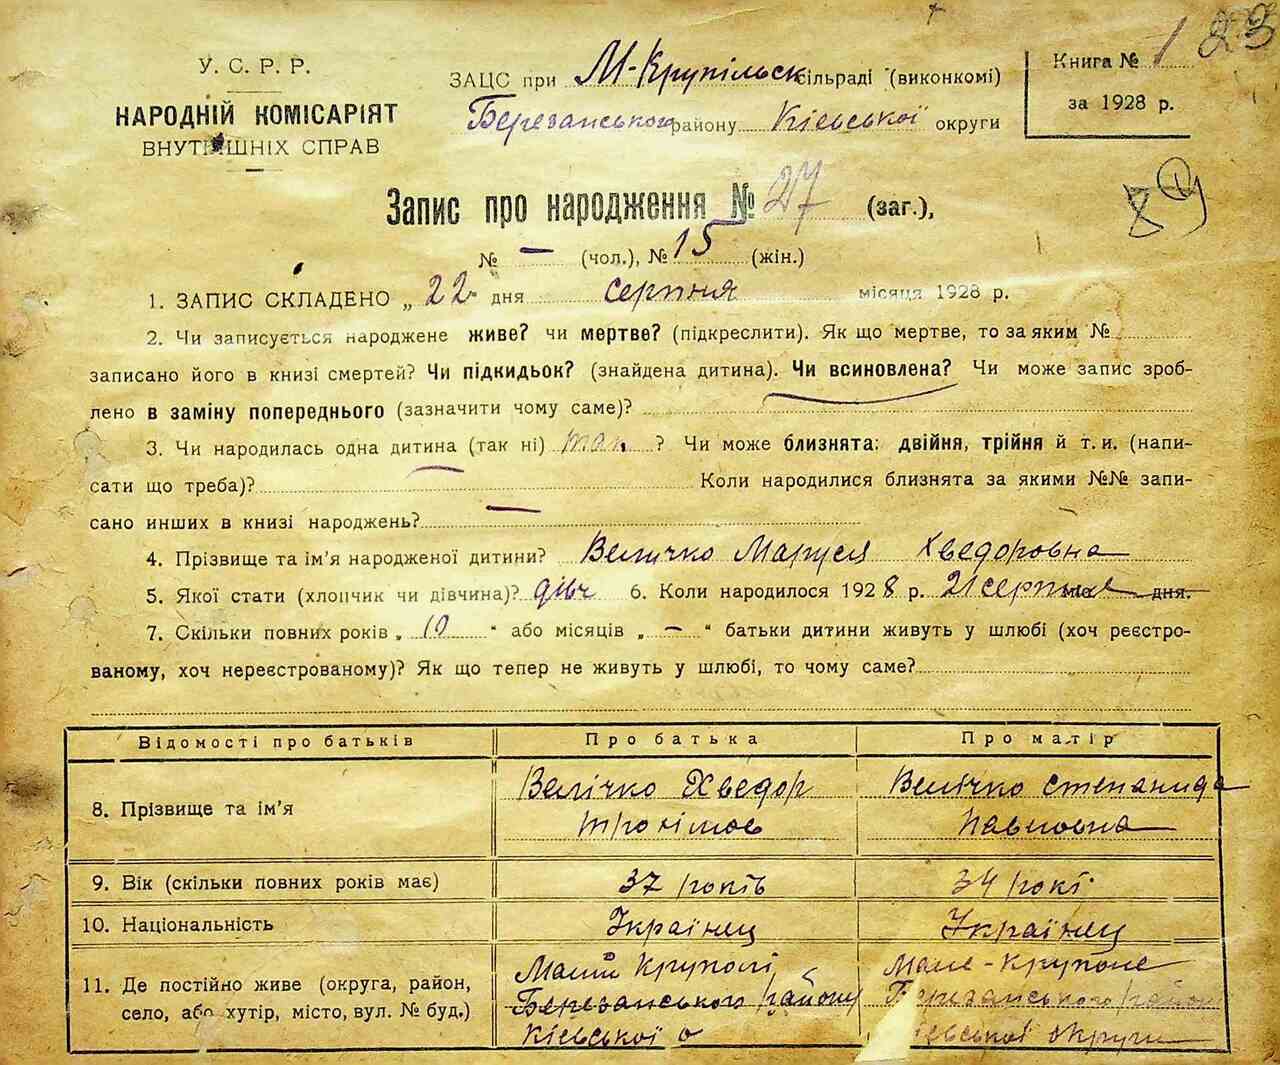 23
У. С. Р. Р.
НАРОДНІЙ КОМІСАРІЯТ
ВНУТРІШНІХ СПРАВ
ЗАЦС при М-Крупільск сільраді (виконкомі)
Березанського району Кієвської округи
Книга № 1
за 1928 р.
Запис про народження № 27 (заг.),
№ — (чол.), № 15 (жін.)
1. ЗАПИС СКЛАДЕНО „ 22 " дня серпня місяця 1928 р.
2. Чи записується народжене живе? чи мертве? (підкреслити). Як що мертве, то за яким №
записано його в книзі смертей? Чи підкидьок? (знайдена дитина). Чи всиновлена? Чи може запис зроб-
лено в заміну попереднього (зазначити чому саме)?
3. Чи народилась одна дитина (так ні) так ? Чи може близнята: двійня, трійня й т. и. (напи-
сати що треба)? — Коли народилися близнята за якими №№ запи-
сано инших в книзі народжень? —
4. Прізвище та ім'я народженої дитини? Величко Маруся Хведоровна
5. Якої стати (хлопчик чи дівчина)? дівч 6. Коли народилося 1928 р. 21 серпня дня.
7. Скільки повних років „ 10 " або місяців „ — " батьки дитини живуть у шлюбі (хоч реєстро-
ваному, хоч нереєстрованому)? Як що тепер не живуть у шлюбі, то чому саме?
Відомості про батьків Про батька Про матір
8. Прізвище та ім'я Велічко Хведор Велічко Степанида
Трохімов Павловна
9. Вік (скільки повних років має) 37 років 34 рокі
10. Національність Українец Українец
11. Де постійно живе (округа, район, Малі Круполі Мале-Круполе
село, або хутір, місто, вул. № буд.) Березанського району Березанського район
Кієвської о Кієвської округи